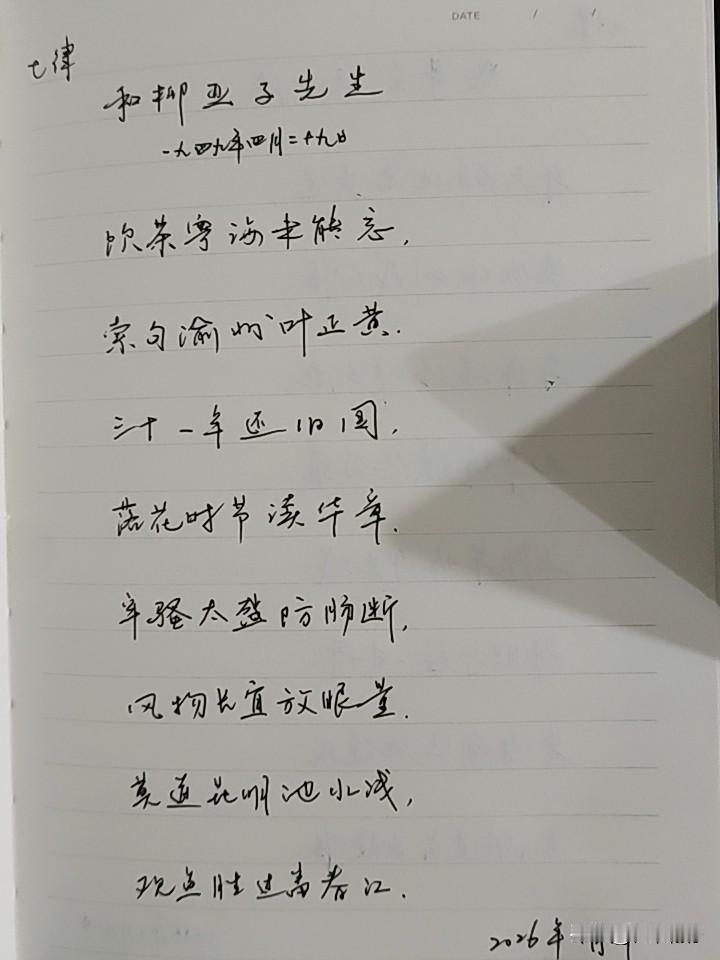 DATE / /
七律
和柳亚子先生
一九四九年四月二十九日
饮茶粤海未能忘,
索句渝州叶正黄.
三十一年还旧国,
落花时节读华章.
牢骚太盛防肠断,
风物长宜放眼量.
莫道昆明池水浅,
观鱼胜过富春江.
2026年